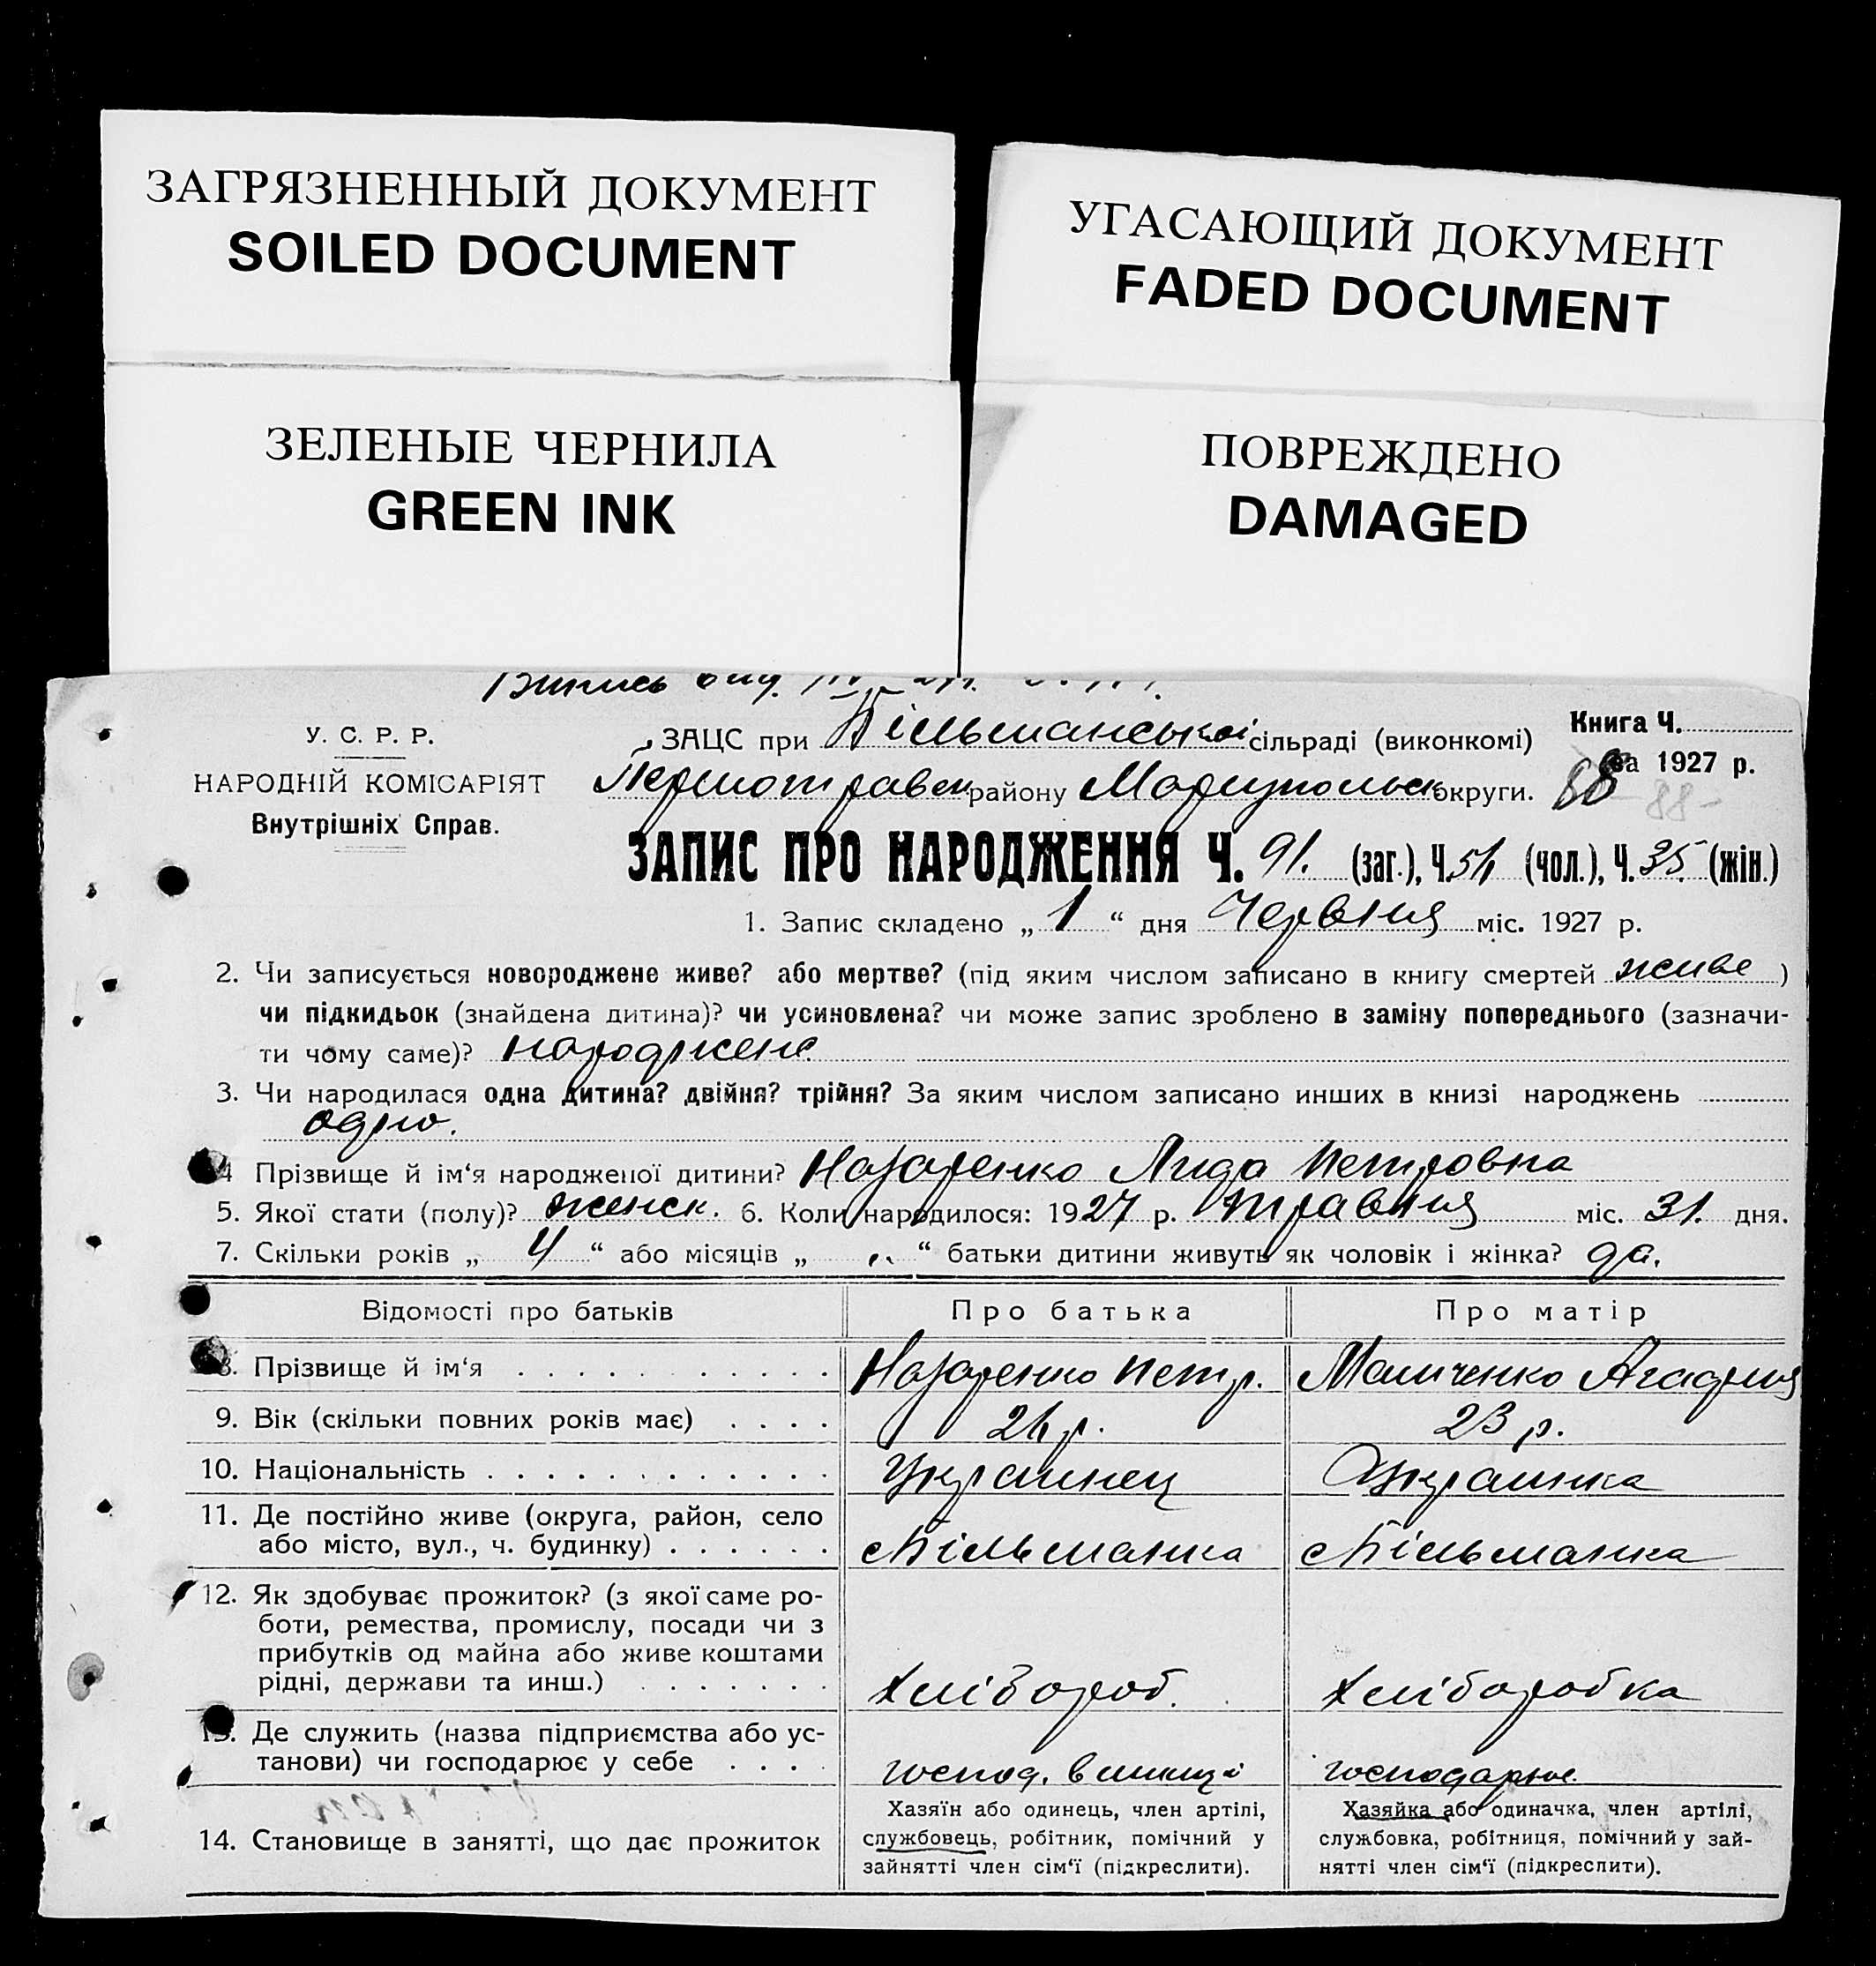 ЗАГРЯЗНЕННЫЙ ДОКУМЕНТ
SOILED DOCUMENT
УГАСАЮЩИЙ ДОКУМЕНТ
FADED DOCUMENT
ЗЕЛЕНЫЕ ЧЕРНИЛА
GREEN INK
ПОВРЕЖДЕНО
DAMAGED
У. С. Р. Р.
НАРОДНІЙ КОМІСАРІЯТ
Внутрішніх Справ.
ЗАЦС при Більманської сільраді (виконкомі)
Першотравен району Маріупольськ округи.
Книга Ч.
за 1927 р.
88
ЗАПИС ПРО НАРОДЖЕННЯ Ч. 91. (заг.), Ч. (чол.), Ч. 35. (жін.)
1. Запис складено „ 1 “ дня Червня міс. 1927 р.
2. Чи записується новороджене живе? або мертве? (під яким числом записано в книгу смертей живе )
чи підкидьок (знайдена дитина)? чи усиновлена? чи може запис зроблено в заміну попереднього (зазначи-
ти чому саме)? народжене
3. Чи народилася одна дитина? двійня? трійня? За яким числом записано инших в книзі народжень
одно.
4 Прізвище й ім‘я народженої дитини? Назаренко Лида Петровна
5. Якої стати (полу)? женск. 6. Коли народилося: 1927 р. травня міс. 31. дня.
7. Скільки років „ 4 “ або місяців „ “ батьки дитини живуть як чоловік і жінка? да.
Відомості про батьків
Про батька
Про матір
8. Прізвище й ім‘я
Назаренко Петр.
9. Вік (скільки повних років має)
23 р.
10. Національність
Украинец
Украинка
11. Де постійно живе (округа, район, село
або місто, вул., ч. будинку)
Більманка
Більманка
12. Як здобуває прожиток? (з якої саме ро-
боти, ремества, промислу, посади чи з
прибутків од майна або живе коштами
рідні, держави та инш.)
Хлібороб.
Хліборобка
13. Де служить (назва підприємства або ус-
танови) чи господарює у себе
господ.
господарює.
14. Становище в занятті, що дає прожиток
Хазяїн або одинець, член артілі,
службовець, робітник, помічний у
зайнятті член сім‘ї (підкреслити).
Хазяйка або одиначка, член артілі,
службовка, робітниця, помічний у зай-
нятті член сім‘ї (підкреслити).